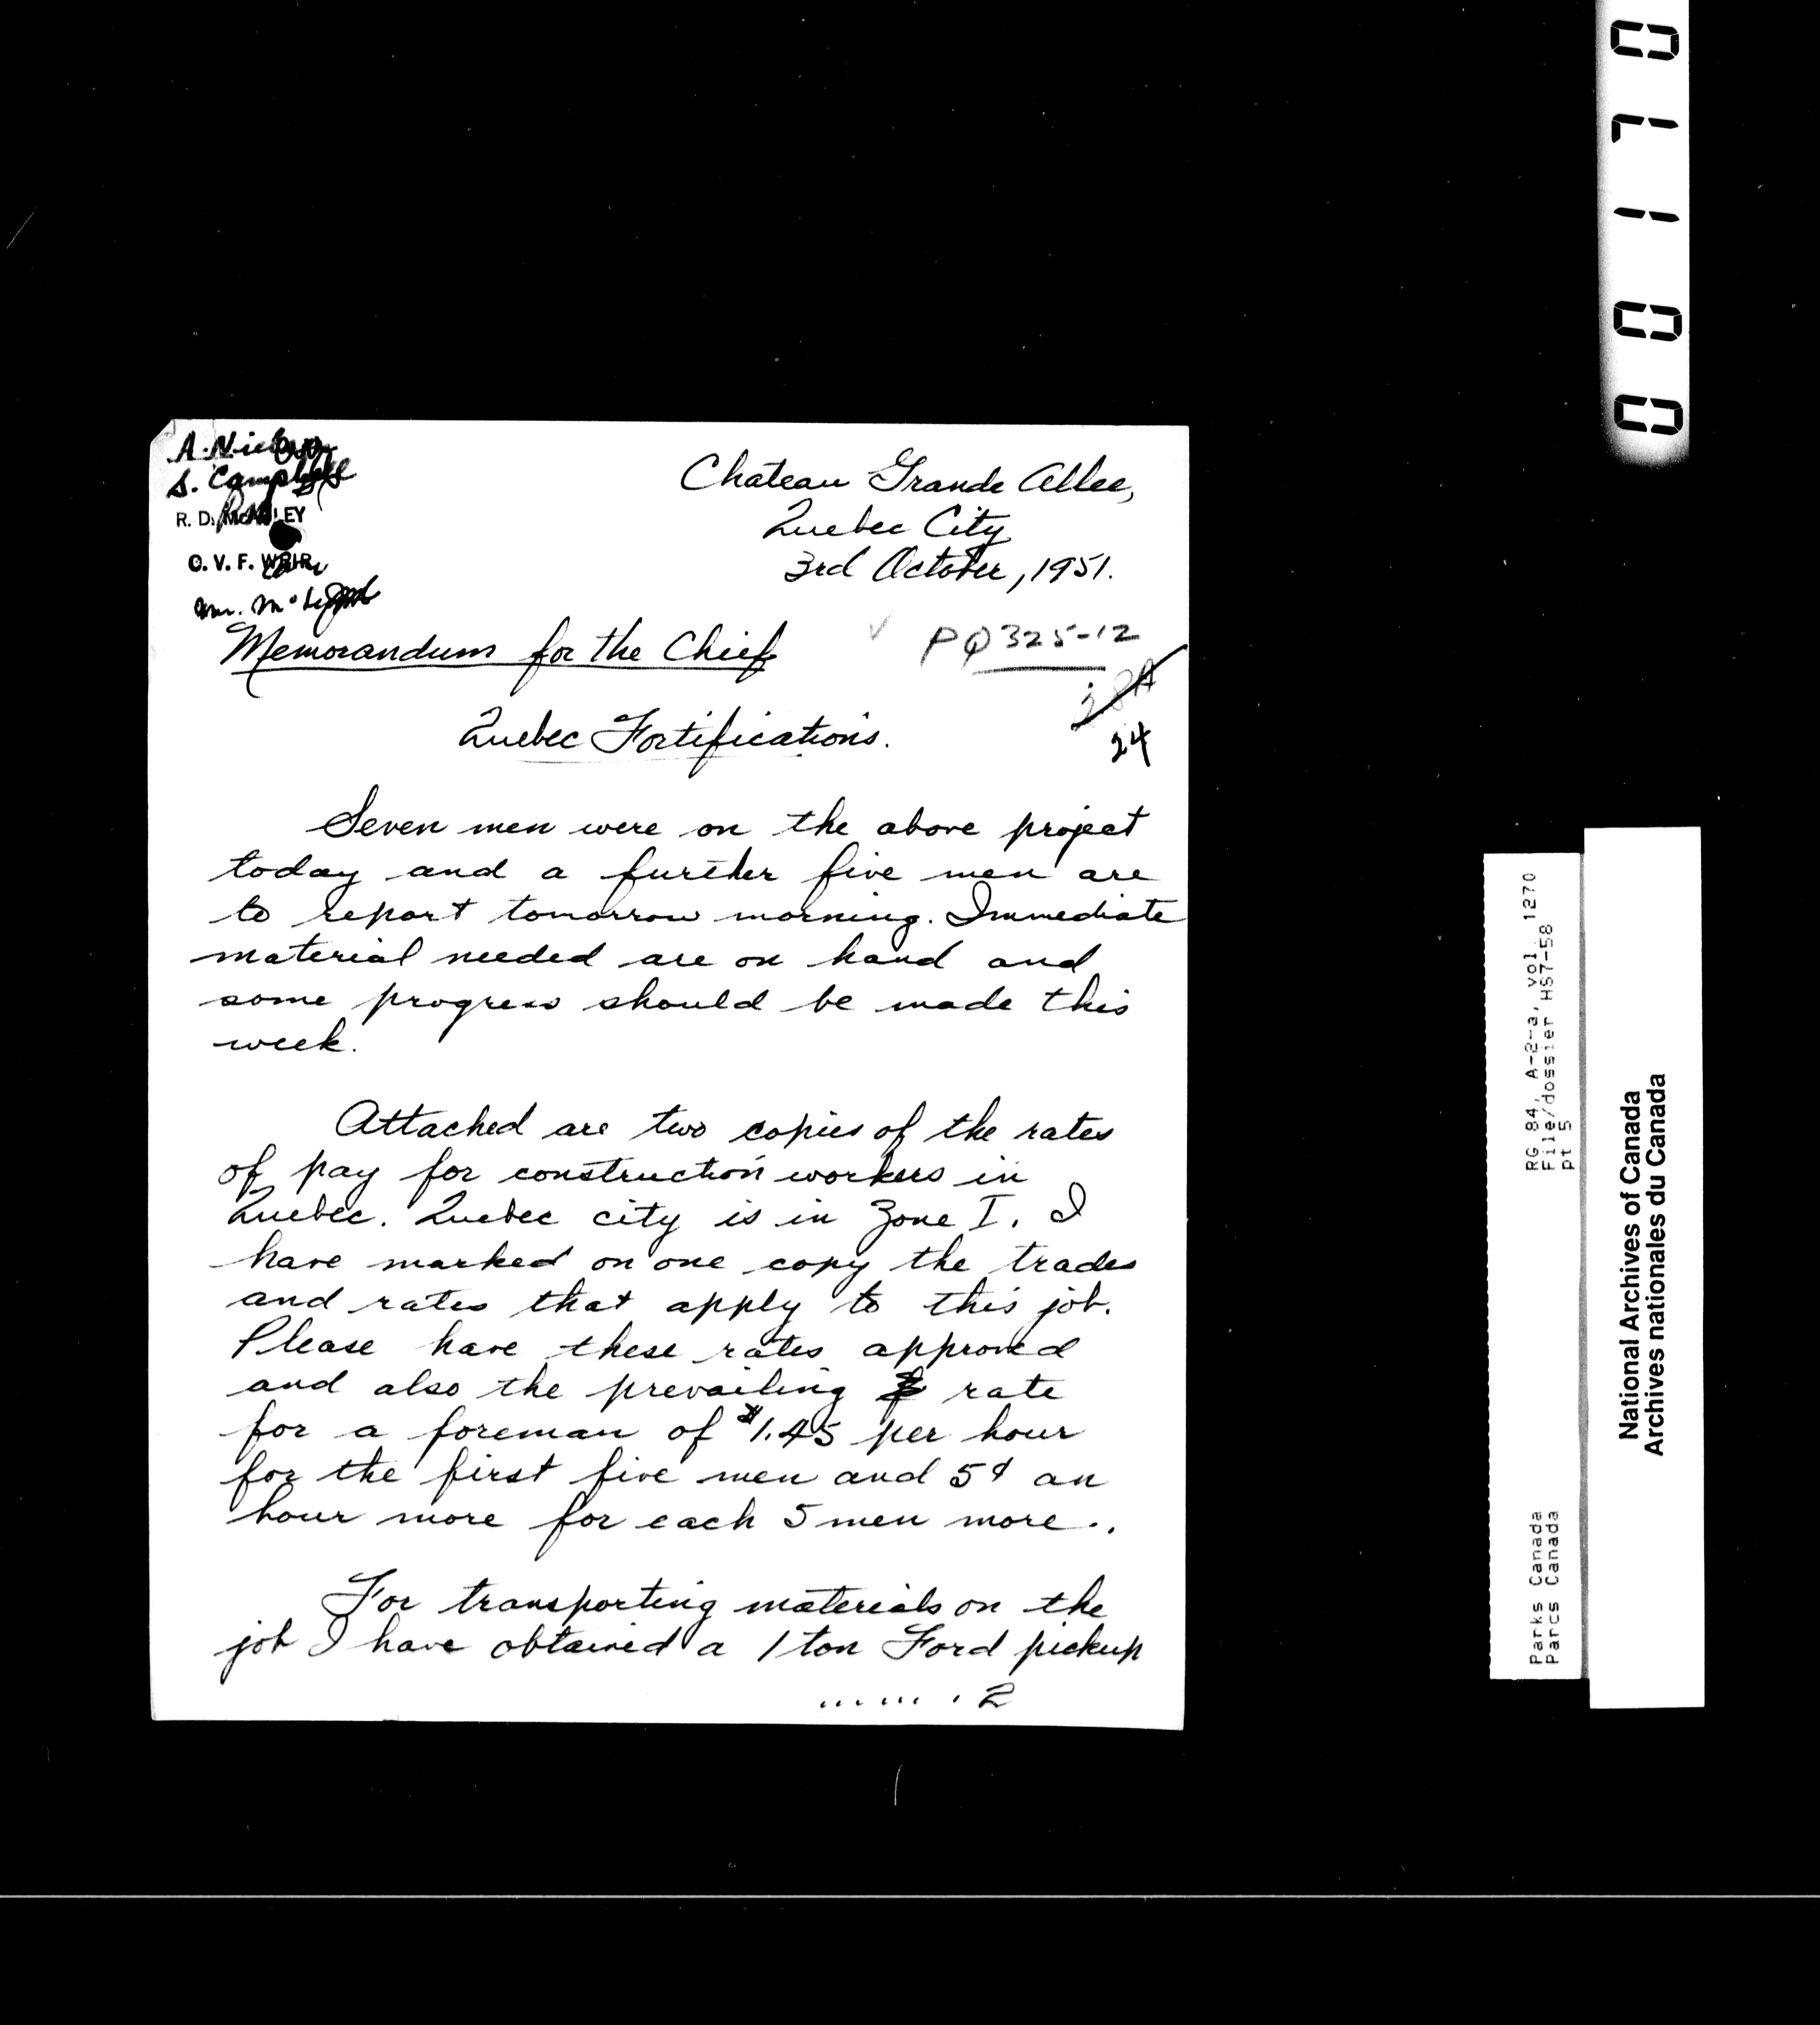 S. Campbell
R. D.
C. V. F. WEIR
Chateau Grande Allee,
Quebec City
3rd October, 1951.
Memorandum for the Chief
PQ 325-12
24
Quebec Fortifications.
Seven men were on the above project
today and a further five men are
to report tomorrow morning. Immediate
material needed are on hand and
some progress should be made this
week.
Attached are two copies of the rates
of pay for construction workers in
Quebec. Quebec city is in Zone I. I
have marked on one copy the trades
and rates that apply to this job.
Please have these rates approved
and also the prevailing rate
for a foreman of $1.45 per hour
for the first five men and 5¢ an
hour more for each 5 men more..
For transporting materials on the
job I have obtained a 1 ton Ford pickup
....... 2
00170
RG 84, A-2-a, vol. 1270
File/dossier HS7-58
pt 5
Parks Canada
Parcs Canada
National Archives of Canada
Archives nationales du Canada